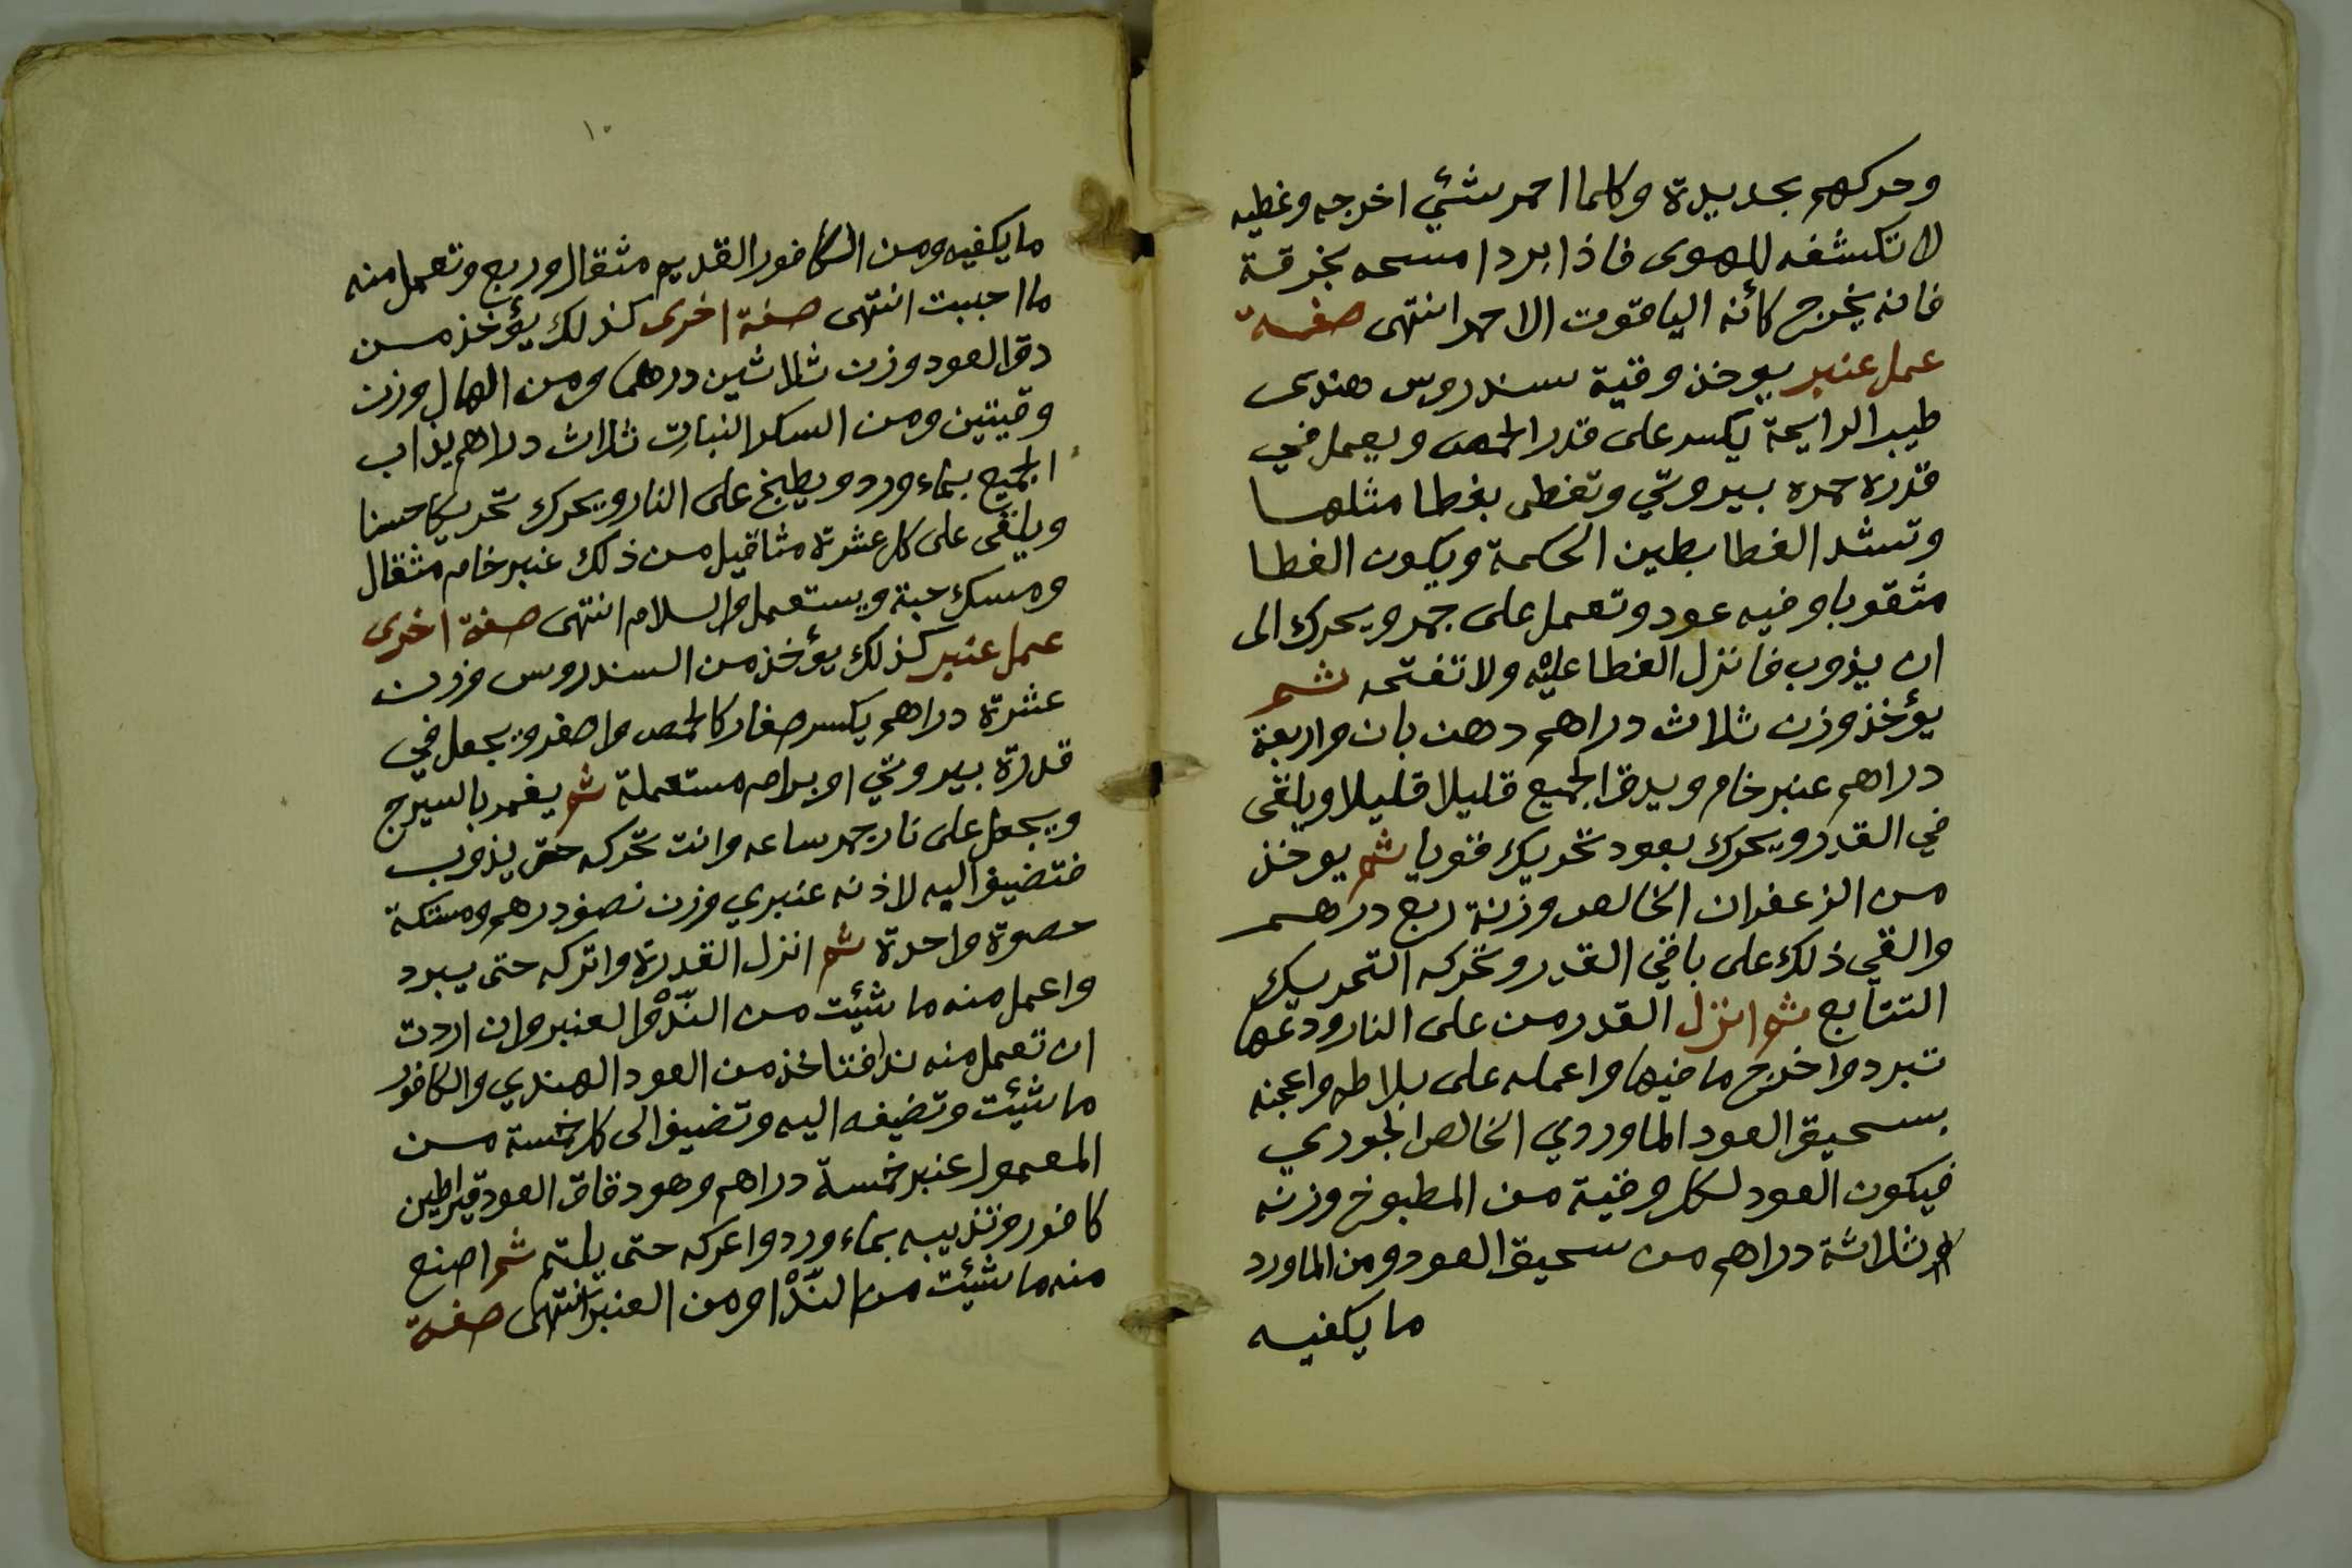 وحركهم بحديدة وكلما احمر شئي اخرجه وغطيه
لا تكشفه للهوى فاذا برد امسحه بخرقة
فانه يخرج كأنه الياقوت الاحمر انتهى صفة
عمل عنبر يوخذ وقية سندروس هندى
طيب الرايحة يكسر على قدر الحمص ويعمل في
قدره حمره بيروتي وتغطى بغطا مثلها
وتشد الغطا بطين الحكمة ويكون الغطا
مثقوبا وفيه عود وتعمل على جمر ويحرك الى
ان يذوب فانزل الغطا عليه ولا تفتحه ثم
يؤخذ وزن ثلاث دراهم دهن بان واربعة
دراهم عنبر خام ويدق الجميع قليلا قليلا ويلقى
في القدر ويحرك بعود تحريك قويا ثم يوخذ
من الزعفران الخالص وزنة ربع درهم
والقي ذلك على باقي القدر وتحركه التحريك
التتابع ثم انزل القدر من على النار ودعها
تبرد واخرج ما فيها واعمله على بلاطه واعجنه
بسحيق العود الماوردي الخالص الجوري
فيكون العود لكل وقية من المطبوخ وزنه
ثلاثة دراهم من سحيق العود ومن الماورد
ما يكفيه
١٠
ما يكفيه ومن الكافور القديم مثقال وربع وتعمل منه
ما احببت انتهى صفة اخرى كذلك يؤخذ من
دق العود وزن ثلاثين درهما ومن الهال وزن
وقيتين ومن السكر النبات ثلاث دراهم يذاب
الجميع بماء ورد ويطبخ على النار ويحرك تحريكا حسنا
ويلقى على كل عشرة مثاقيل من ذلك عنبر خام مثقال
ومسك حبة ويستعمل والسلام انتهى صفة اخرى
عمل عنبر كذلك يؤخذ من السندروس وزن
عشرة دراهم يكسر صغار كالحمص واصغر ويجعل في
قدرة بيروتي او برام مستعملة ثم يغمر بالسيرج
ويجعل على نار جمر ساعه وانت تحركه حتى يذوب
فتضيف اليه لاذنه عنبري وزن نصف درهم ومستكة
حصوة واحدة ثم انزل القدرة واتركه حتى يبرد
واعمل منه ما شئيت من النّدْ والعنبر وان اردت
ان تعمل منه ندا فتاخذ من العود الهندي والكافور
ما شئيت وتضيفه اليه وتضيف الى كل خمسة من
المعمول عنبر خمسة دراهم وهو دقاق العود قيراطين
كافور وتذيبه بماء ورد واعركه حتى يلتم ثم اصنع
منه ما شئيت من النّدْ او من العنبر انتهى صفة